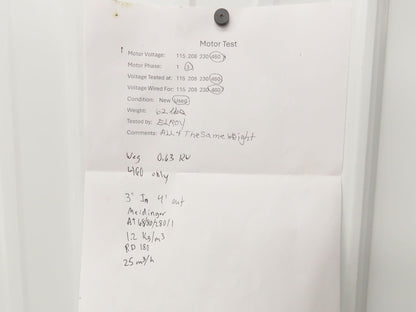 Motor Test
Motor Voltage: 115 208 230 460
Motor Phase: 1 3
Voltage Tested at: 115 208 230 460
Voltage Wired For: 115 208 230 460
Condition: New Used
Weight: 62
Tested by: ELROY
Comments: ALL 4 The Same Weight
Weg 0.63 KW
460 only
3" In 4" out
Meidinger
1.2 Kg/m3
RD 181
25 m3/h